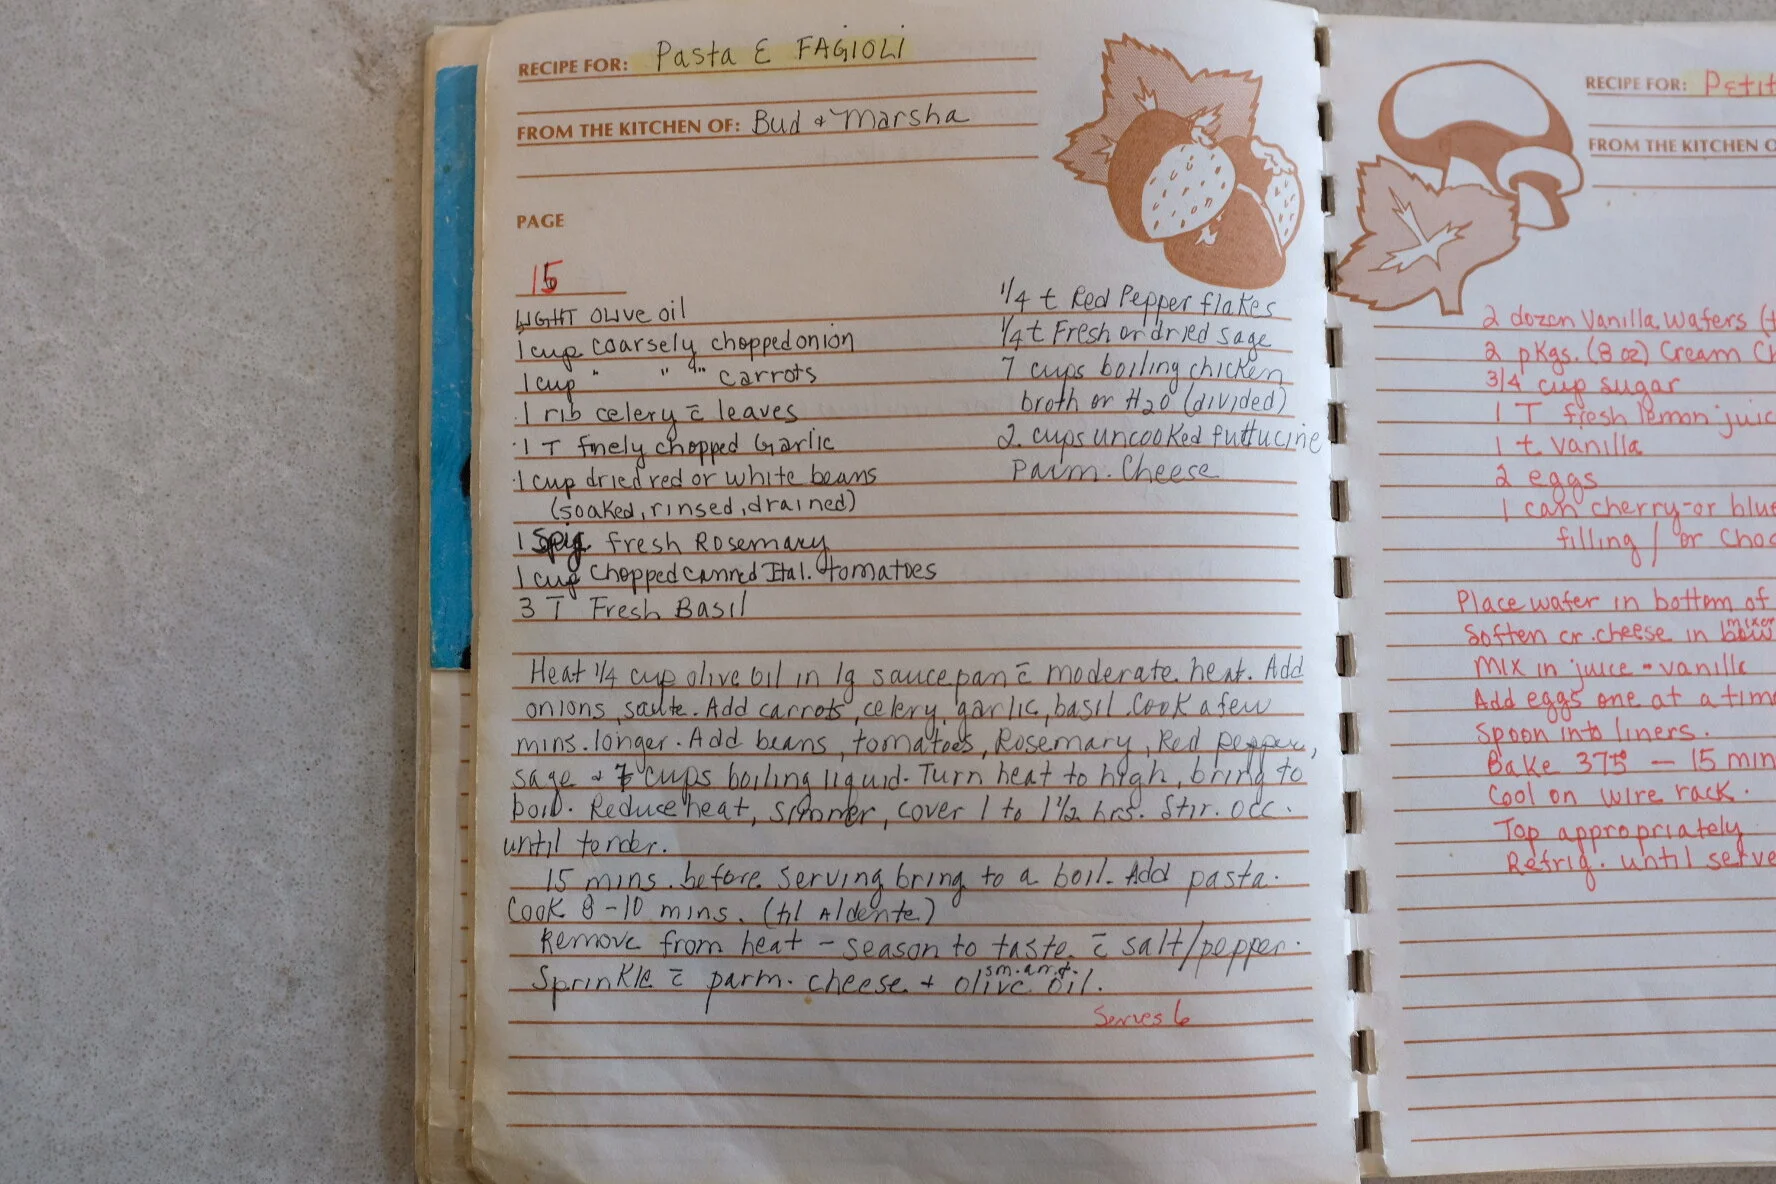 RECIPE FOR: Pasta E FAGIOLI
FROM THE KITCHEN OF: Bud & Marsha
PAGE
15
LIGHT OLIVE oil
1 cup coarsely chopped onion
1 cup " " " carrots
1 rib celery c̄ leaves
1 T finely chopped Garlic
1 cup dried red or white beans
(soaked, rinsed, drained)
1 Spig fresh Rosemary
1 cup Chopped canned Ital. tomatoes
3 T Fresh Basil
1/4 t Red Pepper flakes
1/4 t Fresh or dried sage
7 cups boiling chicken
broth or H2O (divided)
2 cups uncooked futtucine
Parm. Cheese
Heat 1/4 cup olive oil in lg saucepan c̄ moderate heat. Add
onions, saute. Add carrots, celery, garlic, basil. Cook a few
mins. longer. Add beans, tomatoes, Rosemary, Red pepper,
sage & cups boiling liquid. Turn heat to high, bring to
boil. Reduce heat, simmer, cover 1 to 1 1/2 hrs. Stir. occ.
until tender.
15 mins. before serving bring to a boil. Add pasta.
Cook 8-10 mins. (til Aldente)
Remove from heat - season to taste c̄ salt/pepper.
Sprinkle c̄ parm. cheese + sm. amt. olive oil.
Serves 6
RECIPE FOR: Petit
FROM THE KITCHEN O
2 dozen Vanilla wafers (
2 pkgs. (8 oz) Cream Ch
3/4 cup sugar
1 T fresh lemon juic
1 t vanilla
2 eggs
1 can cherry-or blue
filling / or choc
Place wafer in bottom of
Soften cr. cheese in mixer bowl
Mix in juice - vanilla
Add eggs one at a time
Spoon into liners.
Bake 375° - 15 min
Cool on wire rack.
Top appropriately
Refrig. until serve